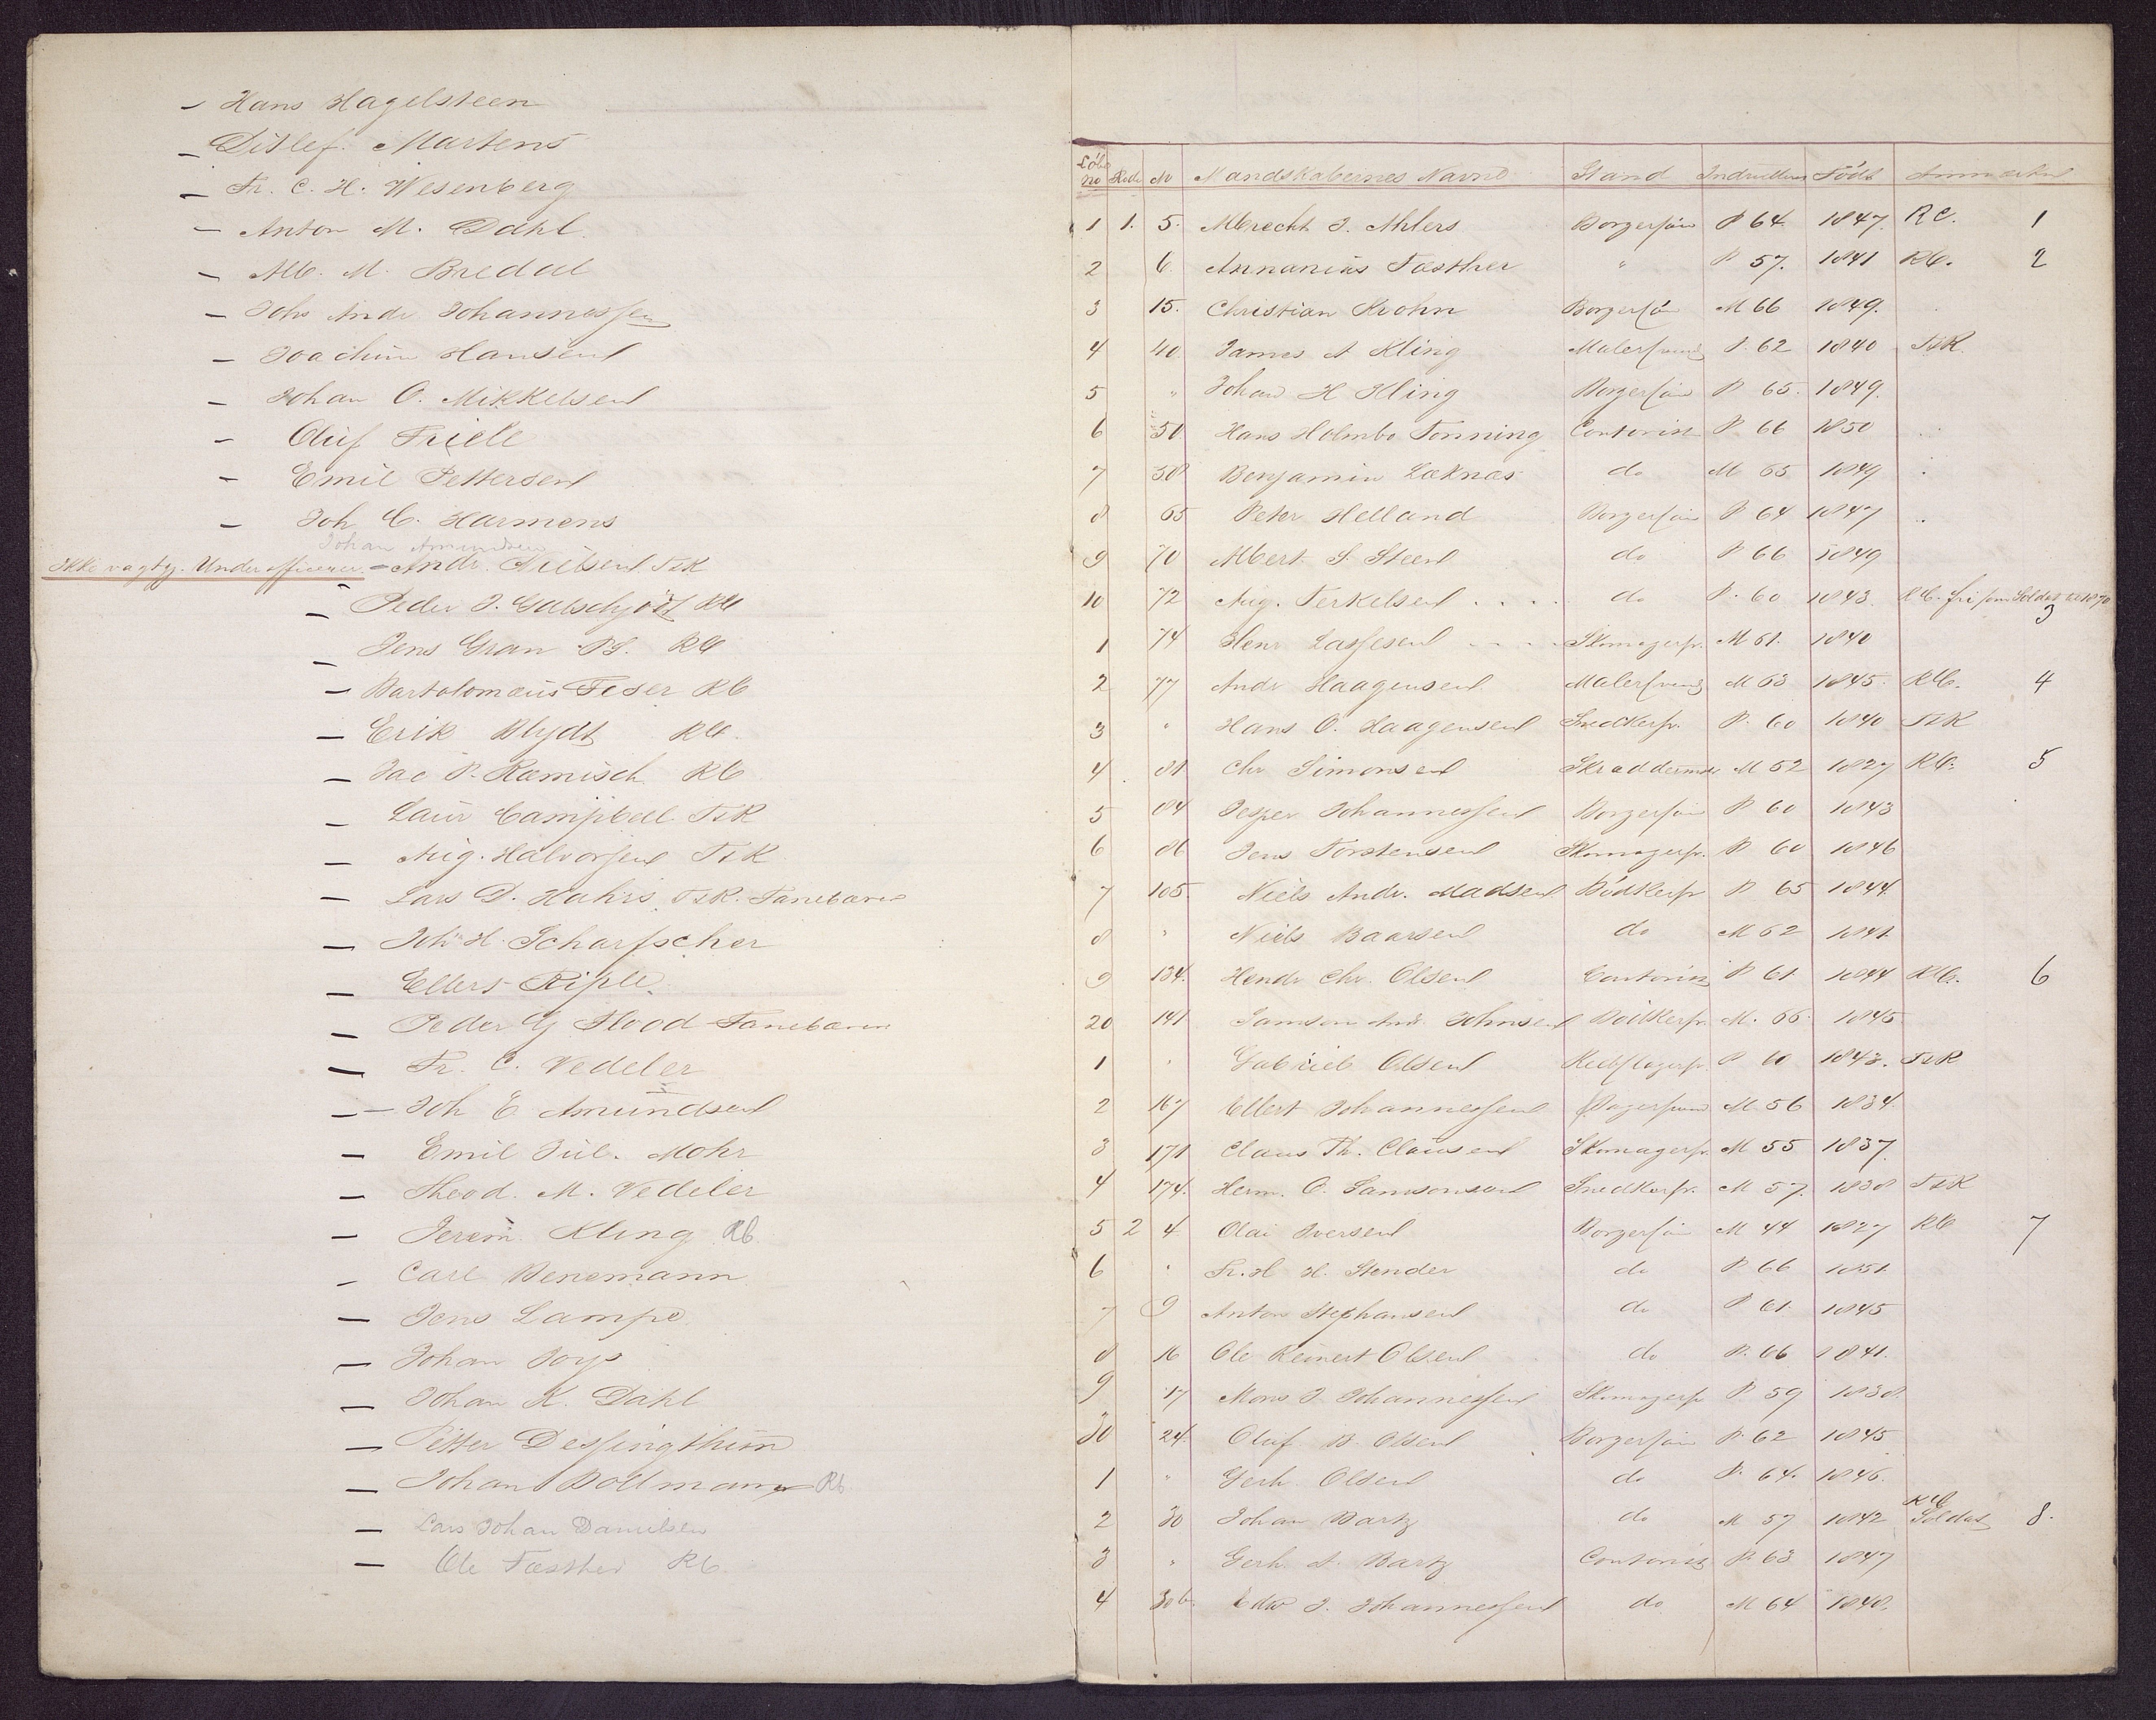 – Hans Hagelsteen
– Ditlef. Martens
– Fr. C. H. Wesenberg
– Anton M. Dahl
– Alb. M. Bredal
– Johs Andr Johannessen
– Joachim Hansen
– Johan O. Mikkelsen
– Oluf Friele
– Emil Pettersen
– Joh C. Harmens
Johan Amundsen
Ikke vagtg. Underofficerer – Andr. Nielsen TsK
– Peder J. Galschjödt RC
– Jens Gran RC
– Bartolomæus Feser RC
– Erik Blydt RC.
– Jac P. Ramisch RC
– Laur Campbell TsK
– Aug. Halvorsen TsK
– Lars D. Hahrs TsK. Fanebærer
– Joh H. Scharfscher
– Ellert Riple
– Peder G Flood Fanebærer
– Fr. C. Vedeler
– Joh E Amundsen
– Emil Jul. Mohr
– Theod. M. Vedeler
– Jerem. Kling RC
– Carl Benemann
– Jens Lampe
– Johan Joys
– Johan K. Dahl
– Petter Dessingthun
– Johan Bollmann RC
– Lars Johan Danielsen
– Ole Fæsther RC
Löb No Rode No Mandskabernes Navne Stand Indrulleret Födt Anmærkn
1 1. 5. Albrecht J. Ahlers Borgersön P 64. 1847. RC. 1
2 6 Annanias Fæsther " P 57. 1841 RC. 2
3 15. Christian Krohn Borgersön M 66 1849.
4 40 James A Kling Malersvend P. 62 1840 TsK
5 " Johan H Kling Borgersön P 65. 1849.
6 50 Hans Holmbo Tonning Contorist P. 66 1850
7 58 Benjamin Laknæs do M 65 1849
8 65 Peter Helland Borgersön P 64 1847
9 70 Albert S. Steen do P 66 1849
10 72 Aug. Terkelsen . . . . do P. 60 1843. RC. fri som Soldat til 1870 3
1 74 Henr Lassesen . . . . Skomagersv. M 61. 1840
2 77 Andr Haagensen Malersvend M 63 1845. RC. 4
3 " Hans O. Haagensen Snedkersv. P. 60 1840 TsK
4 81 Chr Simonsen Skræddermr M 52 1827 RC. 5
5 84 Jesper Johannessen Borgersön P 60 1843
6 86 Jens Torstensen Skomagersv. P 60 1846
7 105. Niels Andr. Madsen Bödkersv P 65 1844
8 " Niels Baarsen do M 62 1841
9 134. Hendr Chr. Olsen Contorist P 61 1844 RC. 6
20 141 Samson And Johnsen Bödkersv. M. 66. 1845
1 " Gabriel Olsen Rebslagersv P 60 1843. TsK
2 167 Ellert Johannessen Bagersvend M 56 1834.
3 171 Claus Th. Clausen Skomagersv. M 55 1837
4 174. Herm. O. Samsonsen Snedkersv. M 57. 1838 TsK
5 2 4 Olai Iversen Borgersön M 44 1827 RC 7
6 " Fr. H. H. Stender do P 66 1851
7 9 Anton Stephansen do P 61 1845
8 16 Ole Reinert Olsen do P. 66 1841.
9 17 Mons J. Johannessen Skomagersv P. 59 1838
30 24. Oluf B. Olsen Borgersön P. 62 1845
1 " Gerh. Olsen do P. 64. 1846.
2 30 Johan Bartz do M 57 1842 RC Soldat 8.
3 " Gerh. A. Bartz Contorist P. 63 1847
4 30 b. Edw J. Johannessen do M 64 1848.